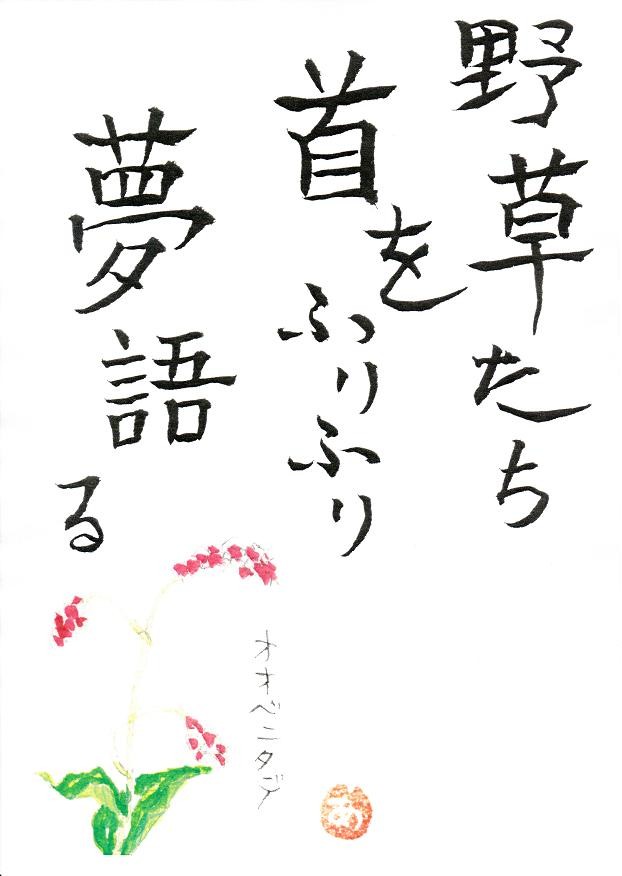 野草たち
首をふりふり
夢語る
オオベニタデ
あ